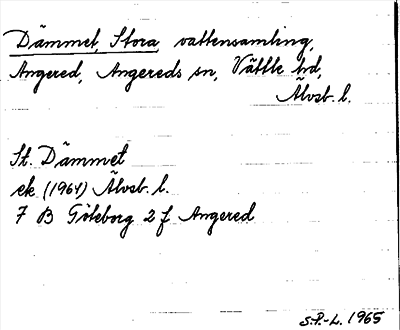 Dämmet, Stora, vattensamling,
Angered, Angereds sn, Vättle hd,
Älvsb. l.
St. Dämmet
ek (1964) Älvsb. l.
7 B Göteborg 2 f Angered
S.P.-L. 1965